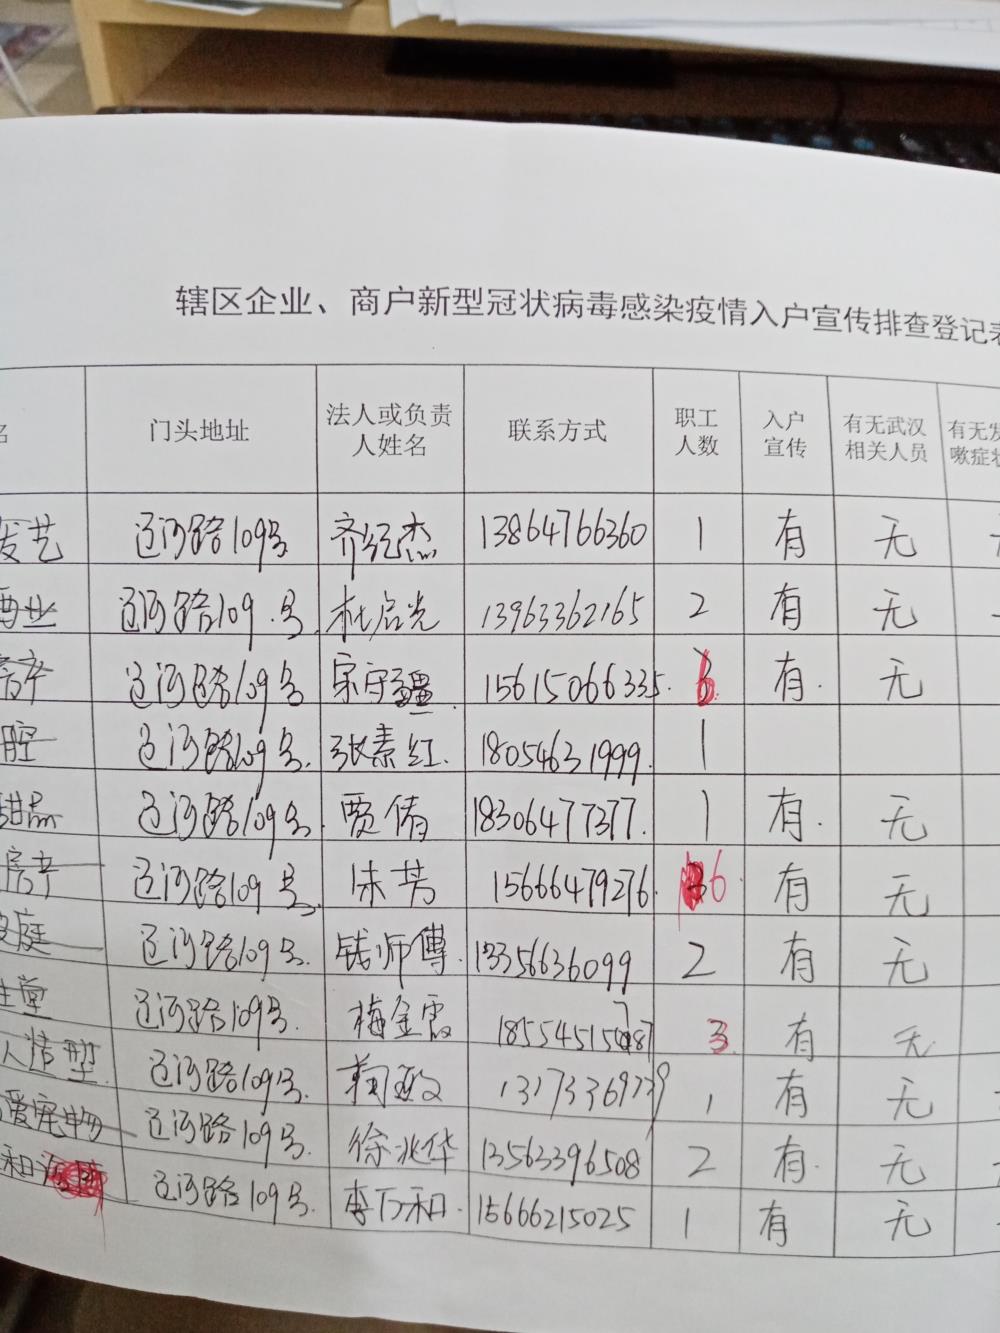 辖区企业、商户新型冠状病毒感染疫情入户宣传排查登记表
名 门头地址 法人或负责人姓名 联系方式 职工人数 入户宣传 有无武汉相关人员 有无发 嗽症状
发艺 辽河路109号 齐纪杰 13864766360 1 有 无
酒业 辽河路109号 杜启光 13963362165 2 有 无
房产 辽河路109号. 宋守疆. 15615066335. 有. 无
腔 辽河路109号. 张素红. 18054631999. 1
甜品 辽河路109号. 贾倩 18306477377. 1 有. 无
房产 辽河路109号. 朱芳 15666479276. 6 有 无
庭 辽河路109号. 钱师傅. 13356636099 2 有 无
生堂 辽河路109号. 梅金霞 3 有 无
人造型 辽河路109号. 1 有 无
爱宠物 辽河路109号. 徐兆华 13563396508 2 有. 无
和 辽河路109号. 李万和. 15666215025 1 有 无